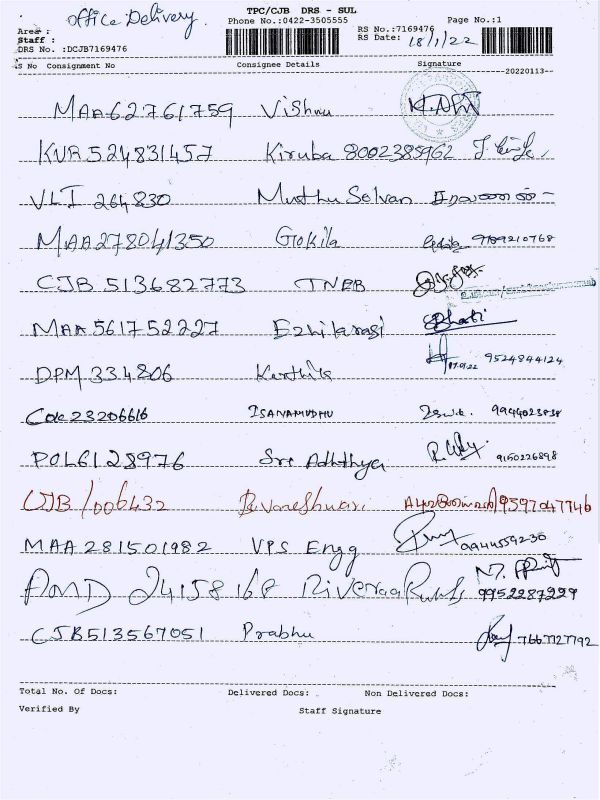 office Delivery
TPC/CJB DRS - SUL
Phone No.:0422-3505555
Page No.:1
Area :
Staff :
DRS No. :DCJB7169476
RS No.:7169476
RS Date: 18/1/22
S No Consignment No Consignee Details Signature
20220113
MAA62761759 Vishnu
KVR524831457 Kiruba 8002385962
VLI 264830 Muthu Selvan
MAA278041350 Gokila 9789210768
CJB 513682773 TNEB
MAA 561752227 Ezhilarasi
DPM 334806 Karthik 9524844124
Cok23206616 ISANAMUDHU 9944023838
POL6128976 Sre Adhthya 9150226898
CJB/006432 Buvaneshwari 9597047746
MAA 281501982 VPS Engg 9944559230
AMD 2415816P Riveraa 9952287229
CJB513567051 Prabhu 7667727792
Total No. Of Docs: Delivered Docs: Non Delivered Docs:
Verified By Staff Signature